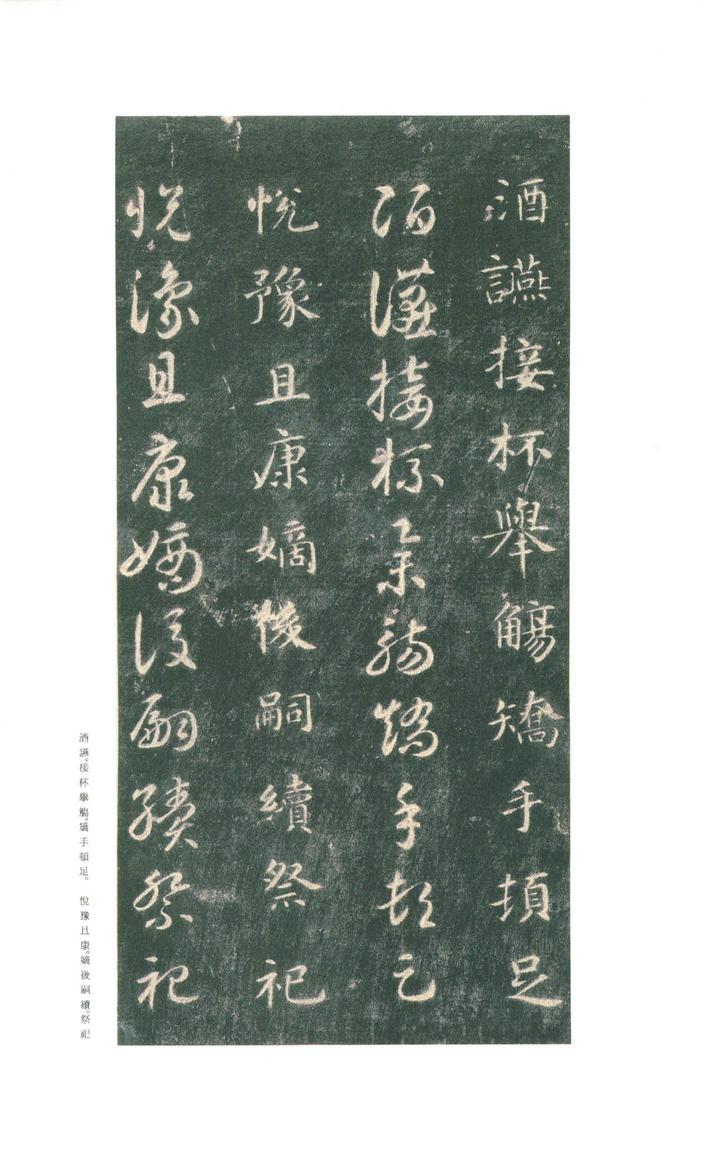 酒讌接杯舉觴矯手頓足
酒讌接杯舉觴矯手頓足
悅豫且康嫡後嗣續祭祀
悅豫且康嫡後嗣續祭祀
酒讌。接杯舉觴。矯手頓足。　悅豫且康。嫡後嗣續。祭祀